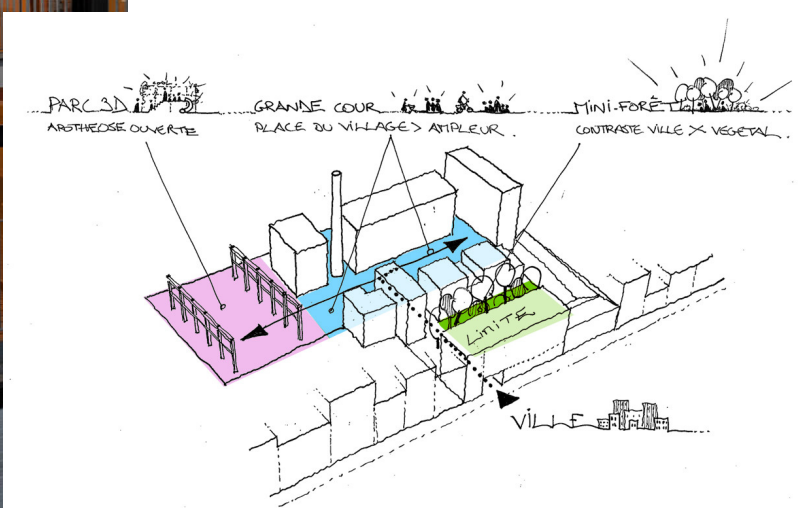 PARC 3D
APOTHEOSE OUVERTE
GRANDE COUR
PLACE DU VILLAGE > AMPLEUR.
MINI-FORÊT
CONTRASTE VILLE X VEGETAL.
LIMITE
VILLE